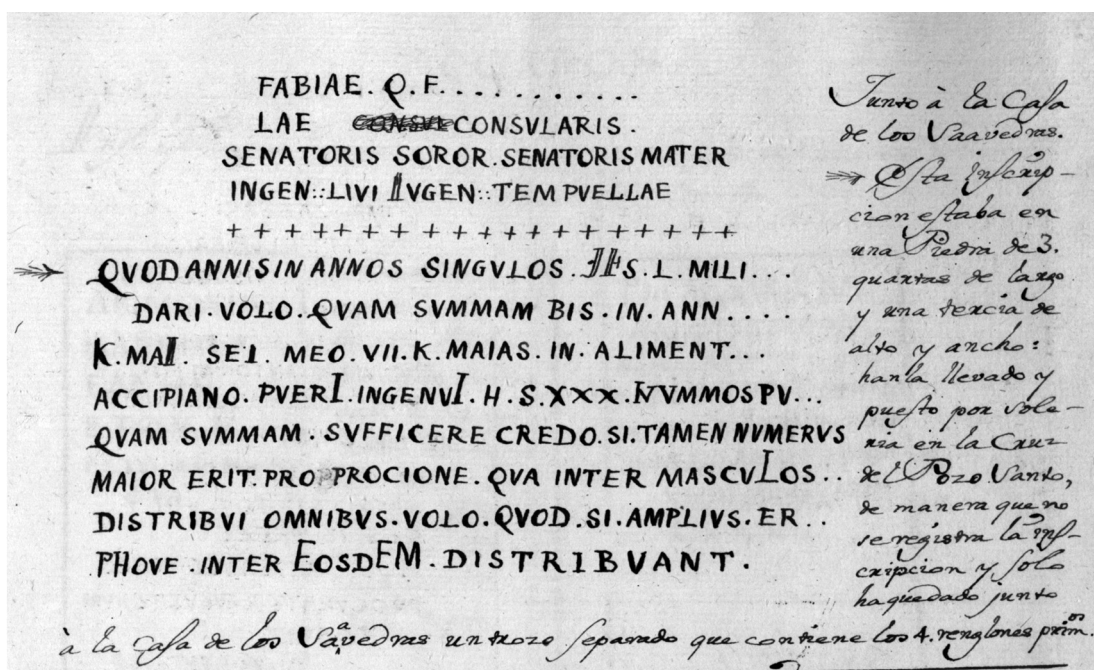 FABIAE . Q . F. . . . . . . . . . . .
LAE CONSVLARIS .
SENATORIS SOROR . SENATORIS MATER
INGEN::LIVI IVGEN::TEM PVELLAE
+ + + + + + + + + + + + + + + + + + +
QVOD ANNIS IN ANNOS SINGVLOS . HS . L . MILI . . .
DARI . VOLO . QVAM SVMMAM BIS . IN . ANN . . . .
K . MAI . SEI . MEO . VII . K . MAIAS . IN . ALIMENT . . .
ACCIPIANO . PVERI . INGENVI . H . S . XXX . NVMMOS PV . . .
QVAM SVMMAM . SVFFICERE CREDO . SI . TAMEN NVMERVS
MAIOR ERIT . PRO PROCIONE . QVA INTER MASCVLOS . .
DISTRIBVI OMNIBVS . VOLO . QVOD . SI . AMPLIVS . ER . .
PHOVE . INTER EOSDEM . DISTRIBVANT .
Junto à la Casa
de los Saavedras.
Esta inscrip-
cion estaba en
una Piedra de 3.
quartas de largo
y una tercia de
alto y ancho:
hanla llevado y
puesto por sole-
ria en la Cruz
de el Pozo Santo,
de manera que no
se registra la ins-
cripcion y solo
ha quedado junto
à la Casa de los Saavedras un trozo separado que contiene los 4. renglones prim.os